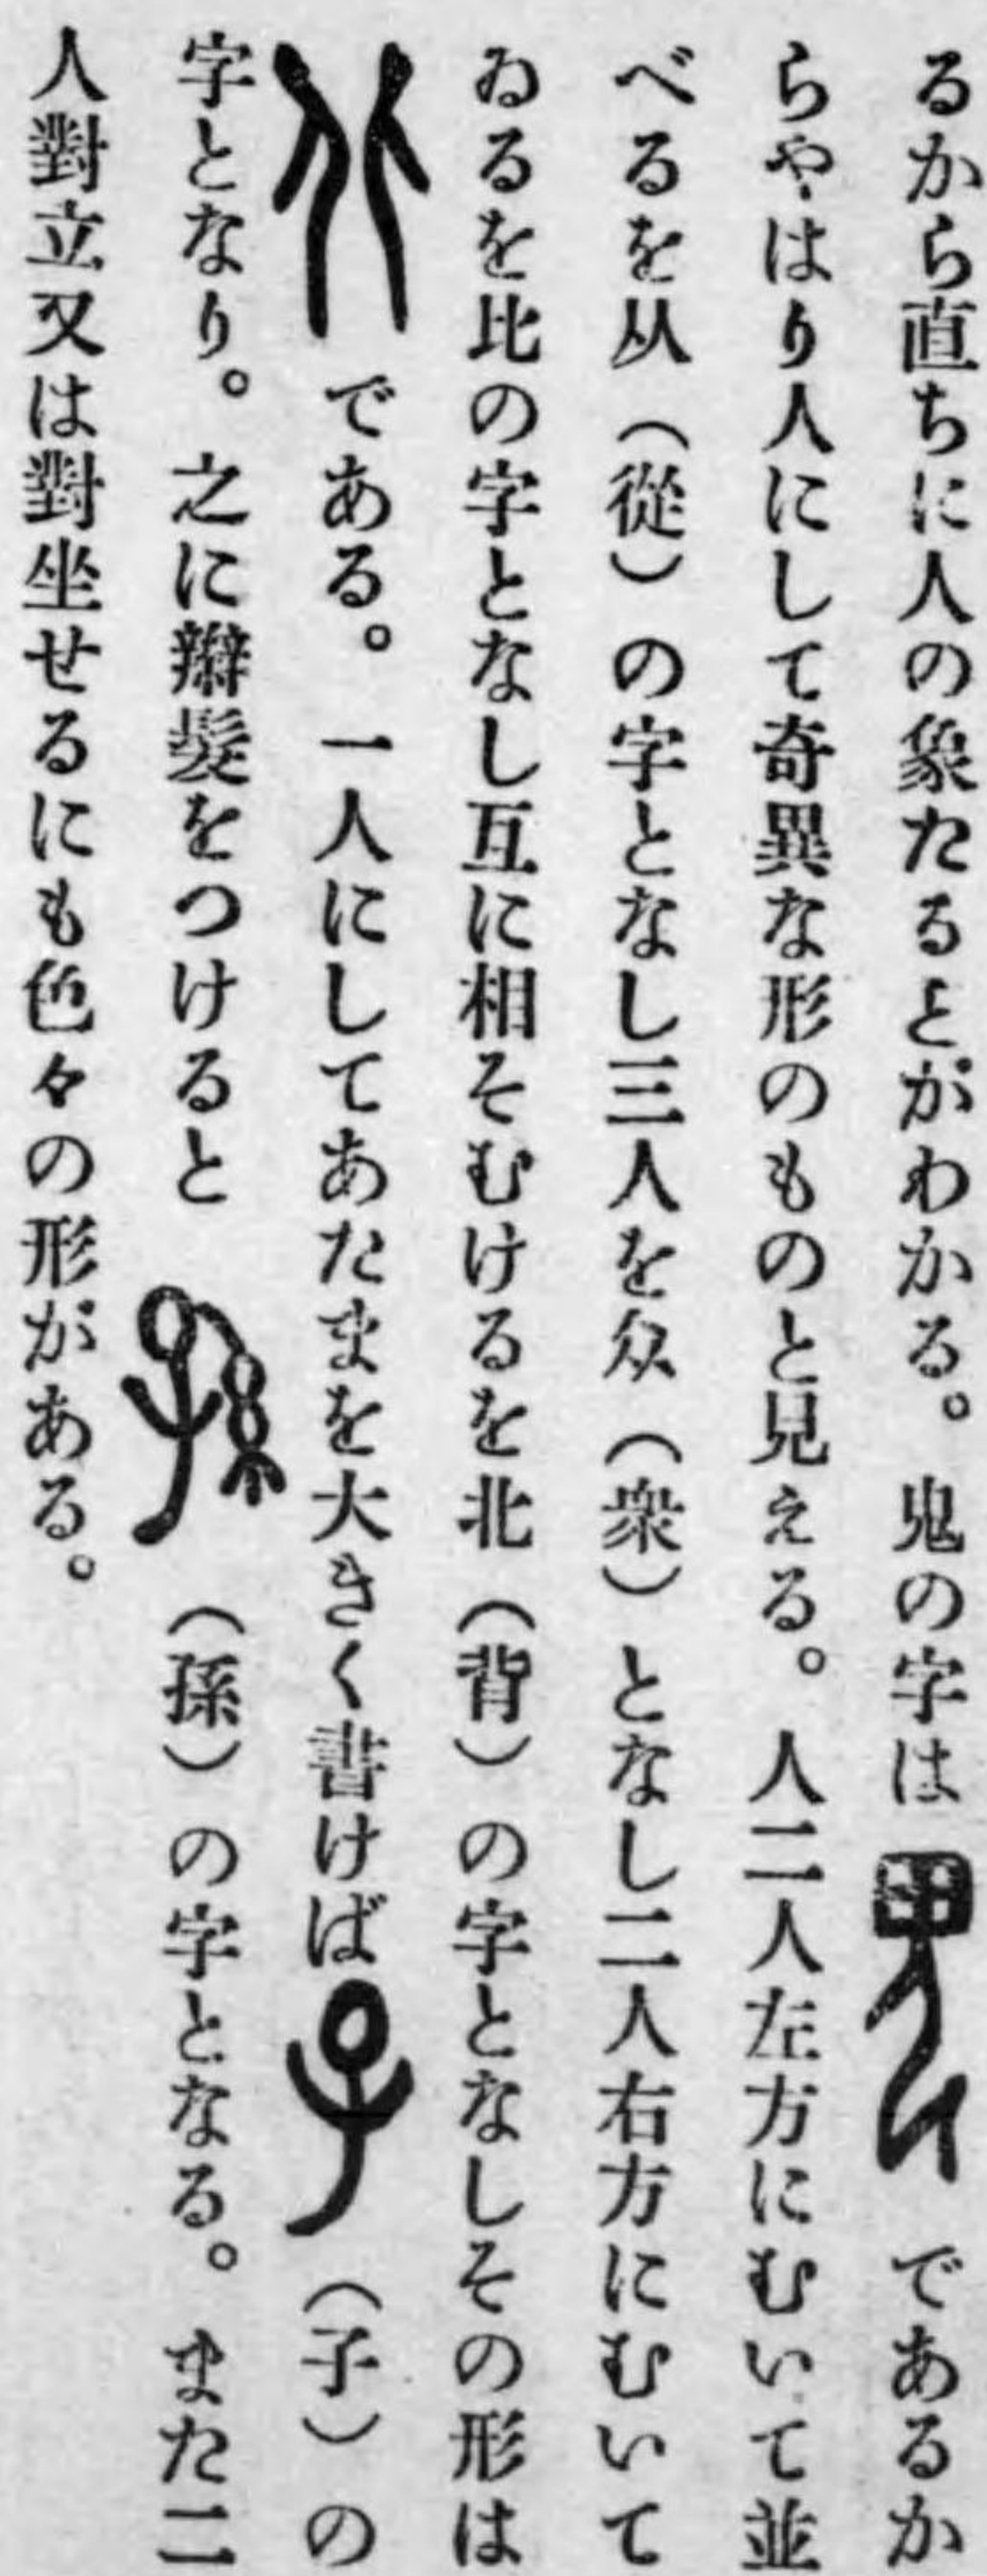 るから直ちに人の象たるとがわかる。鬼の字は であるか
らやはり人にして奇異な形のものと見える。人二人左方にむいて並
べるを从（從）の字となし三人を众（衆）となし二人右方にむいて
ゐるを比の字となし互に相そむけるを北（背）の字となしその形は
である。一人にしてあたまを大きく書けば （子）の
字となり。之に辮髮をつけると （孫）の字となる。また二
人對立又は對坐せるにも色々の形がある。